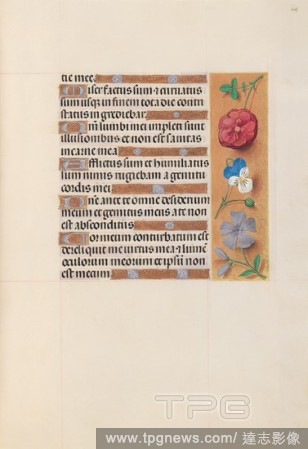 tie mee.
Miser factus sum ⁊ curuatus
sum usq; in finem tota die contri
status ingrediebar.
lumbi mei impleti sunt
illusionibus et non est sanitas
in carne mea
Afflictus sum et humiliatus
sum nimis rugiebam a gemitu
cordis mei
ante te omne desiderium
meum et gemitus meus a te non
est absconditus
Cor meum conturbatum est
dereliquit me uirtus mea ⁊ lumē
oculorum meorum et ipsum non
est mecum
TPG
www.tpgnews.com/ 達志影像